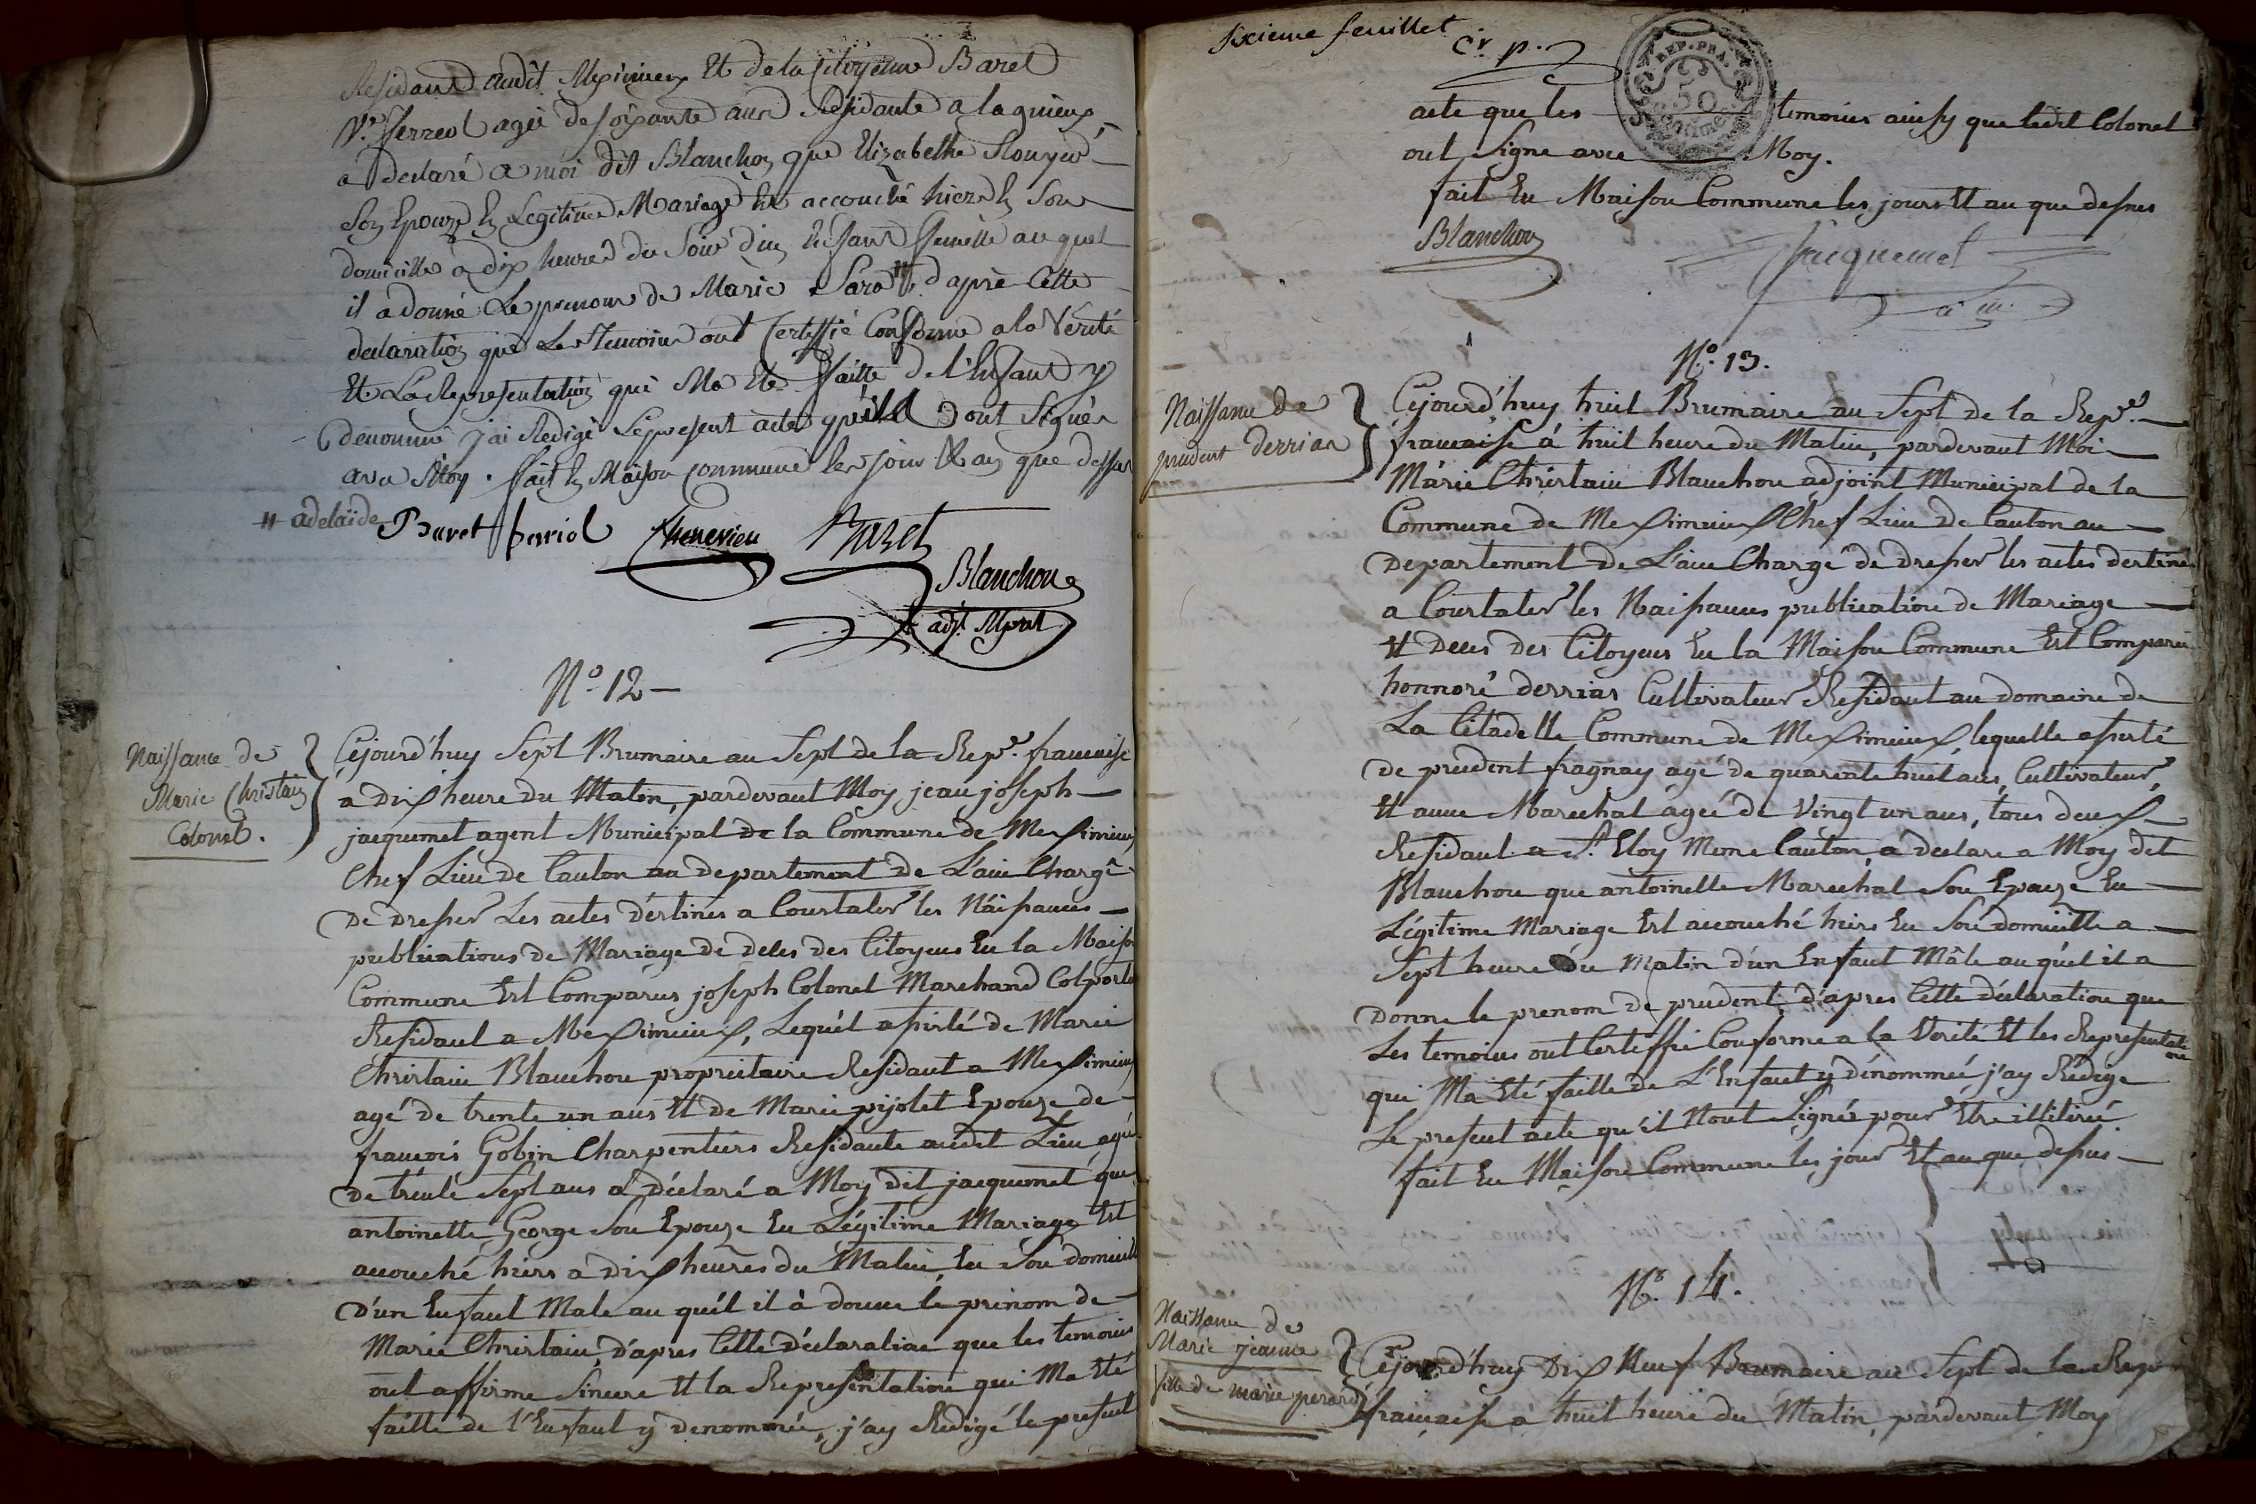 Residant audit Meximieux Et de la Citoyenne Baret
Ve. ferreol agée de soixante ans Residante a lagnieux
a declaré a moi dit Blanchon que Elizabethe
son Epouze En Legitime Mariage Est accouché hier En Son
domicille a dix heures du Soir d'un Enfant femelle auquel
il a donné Le prenom de Marie Sara # d'après Cette
declaration que Les Temoins ont Certiffié Conforme a la Vérité
Et La Representation qui Ma Eté faitte de l'Enfant y
denommé j'ai Redigé Le present acte qu'ils ont Signés
avec Moy. fait En Maison Commune les jour Et an que dessus
# adelaïde Baret ferriol Chenevieu Buret
Blanchon
adjt. Mpal
No. 12 -
Naissance de
Marie Christain
Colonel.
Cejourd'huy Sept Brumaire an Sept de la Repe. francaise
a Dix heure du Matin, pardevant Moy jean joseph
jacquemet agent Municipal de la Commune de Meximieux
Chef Lieu de Canton au departement de L'ain Chargé
De dresser Les actes déstinés a Constater les Náissances
publications de Mariage de deces des Citoyens En la Maison
Commune Est Comparus joseph Colonel Marchand Colporteur
Residant a Meximieux, Lequél assisté de Marie
Christain Blanchon proprietaire Residant a Meximieux
agé de trente un ans Et de Marie pijolet Epouze de
francois Gobin Charpentiers Residante audit Lieu agée
de trente Sept ans a déclaré a Moy dit jacquemet que
antoinette George Son Epouze En Légitime Mariage Est
accouché hiers a Dix heures du Matin, En Son domicille
D'un Enfant Male au quél il à donné le prénom de
Marie Christain, d'apres Cette déclaration que les temoins
ont affirmé Sincere Et la Representation qui Ma Eté
faitte de l'Enfant y denommée, j'ay Redigé le present
Sixieme feuillet
Cr. p.
REP. FRA.
50
Centimes
acte que les temoins ainsy que ledit Colonel
ont Signé avec Moy.
fait En Maison Commune les jours Et an que dessus
Blanchon Jacquemet
a. m.
No. 13.
Naissance de
prudent derrias
Cejourd'huy huit Brumaire an Sept de la Repe.
francaise á huit heure du Matin, pardevant Moi
Márie Christain Blanchon adjoint Municipal de la
Commune de Meximieux Chef Lieu de Canton au
Departement de L'ain Chargé de dresser les actes destinés
a Constater les Naissances publication de Mariage
Et Deces des Citoyens En la Maison Commune Est Comparu
honnoré derrias Cultivateur Residant au domaine de
La Citadelle Commune de Meximieux, lequelle assisté
De prudent fragnay agé de quarante huit ans, Cultivateur,
Et anne Marechal ágée de Vingt un ans, tous deux
Residant a St. Eloy Meme Canton, a declare a Moy dit
Blanchon que antoinette Marechal Son Epouze En
Légitime Mariage Est accouché hiers En Son domicille a
Sept heure du Matin d'un Enfant Mâle au quél il a
Donne le prenom de prudent, d'apres Cette déclaration que
Les temoins ont Certiffié Conforme a la Verité Et les Representati
on
qui Ma Eté faitte de L'Enfant y dénommée, j'ay Rédigé
Le present acte qu'il N'ont Signés pour Etre illitiré
fait En Maison Commune les jour Et an que dessus
No. 14.
Naissance de
Marie jeanne
fille de marie perard
Cejourd'huy Dix Neuf Brumaire an Sept de la Rep
francaise a huit heure du Matin, pardevant Moy